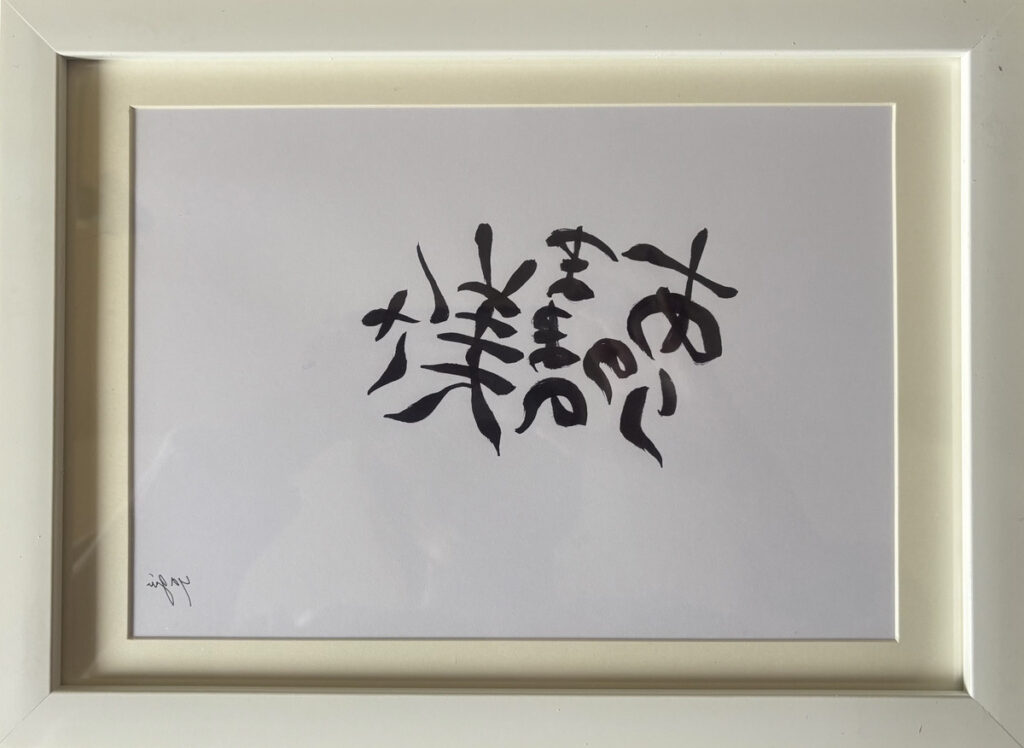 ありのままの美しさ